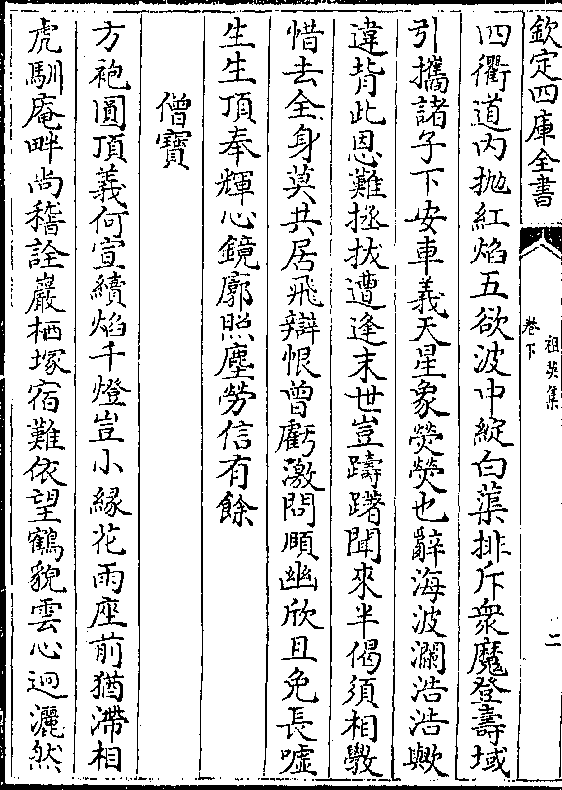 欽定四庫全書
祖英集
卷下
二
四衢道内抛紅焰五欲波中綻白蕖排斥衆魔登壽域
引攜諸子下安車義天星象熒熒也辭海波瀾浩浩歟
違背此恩難拯拔遭逢末世豈躊躇聞來半偈須相斆
惜去全身莫共居飛辯恨曾虧激問順幽欣且免長噓
生生頂奉輝心鏡廓照塵勞信有餘
僧寶
方袍圓頂義何宣續焰千燈豈小緣花雨座前猶滯相
虎馴庵畔尚稽詮巖栖塚宿難依望鶴貌雲心迥灑然